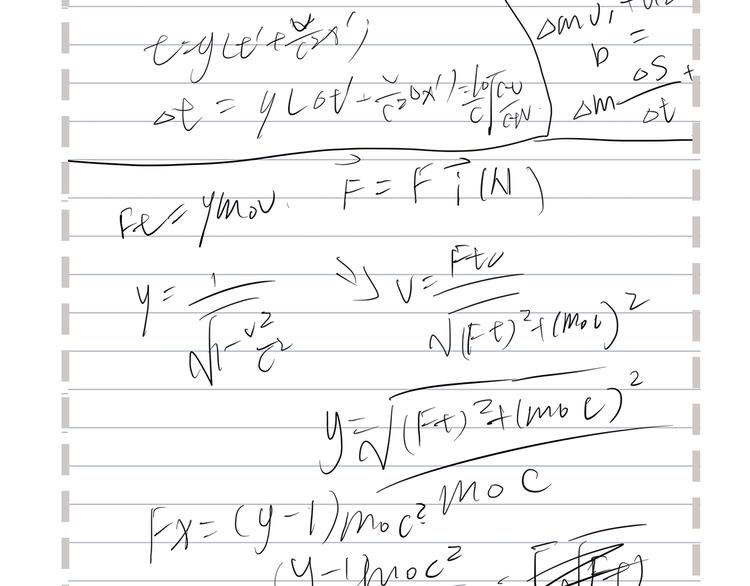 t=γ(t'+v/c²x')
Δt = γ(Δt'+v/c²Δx')=l₀/c√c-v/c+v
Δm
b =
ΔS +
Δm Δt
Ft=γm₀v. F⃗=Fi⃗(N)
γ=1/√1-v²/c² ⇒ v=Ftc/√(Ft)²+(m₀c)²
γ=√(Ft)²+(m₀c)²/m₀c
Fx=(γ-1)m₀c²
(γ-1)m₀c² =